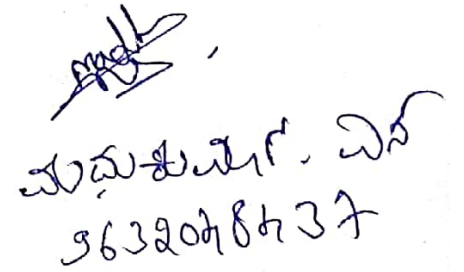 ಮಧುಕುಮಾರ. ಎಸ
9632048437